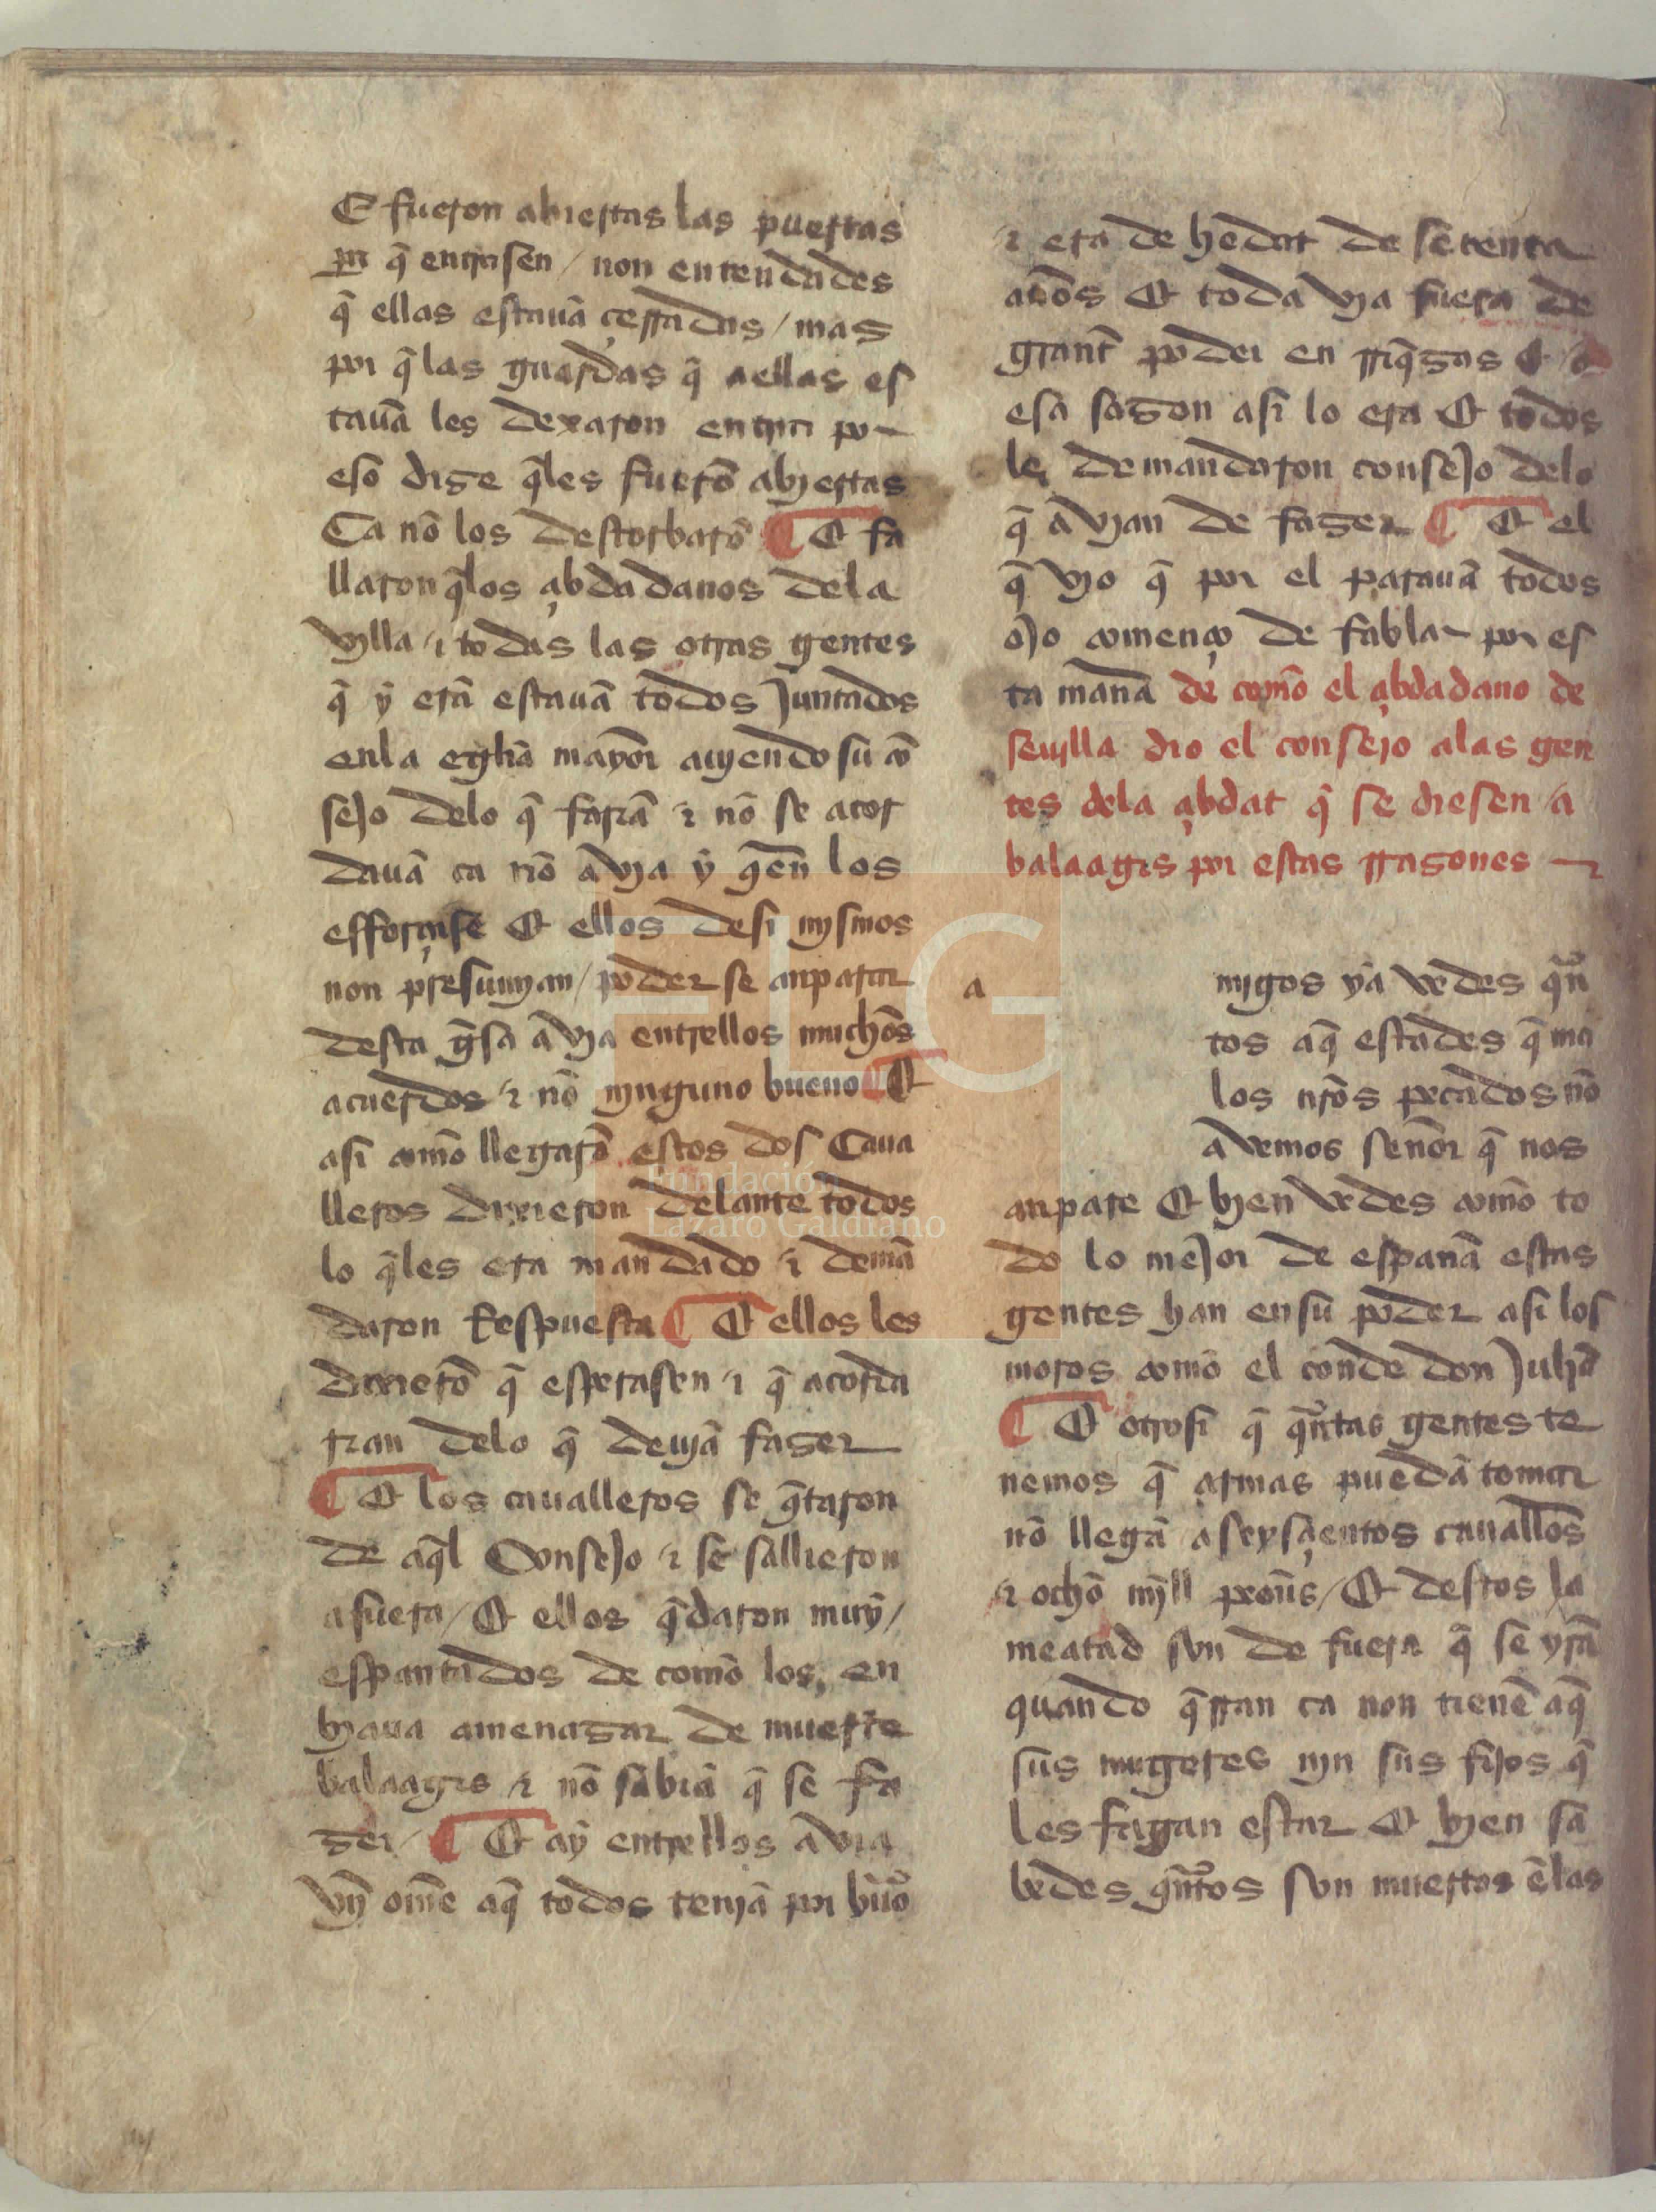 E fueron abiertas las puertas
par q̃ entrasen / non entendades
q̃ ellas estauã çerradas / mas
por q̃ las guardas q̃ a ellas es
tauã les dexaron entrar por
eso dige q̃les fuerõ abiertas
Ca nõ los destorbarõ ¶ Et fa
llaron q̃los çibdadanos dela
villa ⁊ todas las otras gentes
q̃ ỹ erã estauã todos Juntados
enla egl̃ia mayor auiendo su cõ
sejo delo q̃ fariã ⁊ nõ se acor
dauã ca nõ avia ỹ quẽ los
esforçase Et ellos desi mismos
non presumian / poder se anparar
desta g̃sa avia entrellos muchos
acuerdos ⁊ nõ ninguno bueno ¶ Et
asi comõ llegarõ estos dos Caua
lleros dixieron delante todos
lo q̃les era mandado ⁊ demã
daron Respuesta ¶ Et ellos les
dixierõ q̃ esperasen ⁊ q̃ acorda
rian delo q̃ deuiã fager
¶ Et los caualleros se q̃taron
de aq̃l Consejo ⁊ se sallieron
afuera / Et ellos q̃daron muy /
espantados de comõ los en
biaua amenagar de muerte
balaagis ⁊ nõ sabiã q̃ se fa
ger / ¶ Et aỹ entrellos avia
vñ omẽ aq̃ todos teniã por buẽo
⁊ era de hedat de setenta
años Et toda via fuera de
grant poder en rriq̃gas Et a
esa sagon asi lo era Et todos
le demandaron consejo delo
q̃ avian de fager ¶ Et el
q̃ vio q̃ por el parauã todos
ojo començo de fablar por es
ta manã de comõ el çibdadano de
seuilla dio el consejo alas gen
tes dela çibdat q̃ se diesen a
balaagis por estas rragones
a
migos ya vedes q̃n
tos aq̃ estades q̃ ma
los nr̃os pecados nõ
avemos señor q̃ nos
anpare Et bien vedes comõ to
do lo mejor de españa estas
gentes han en su poder asi los
moros comõ el conde don Juliã
¶ Et otrosi q̃ q̃ntas gentes te
nemos q̃ armas puedã tomar
nõ llegã a seysçientos cauallõs
⁊ ocho mill peoñs / Et destos la
meatad son de fuera q̃ se yrã
quando q̃rran ca non tienẽ aq̃
sus mugeres nin sus fijos q̃
les fagan estar Et bien sa
bedes q̃ntos son muertos ẽ las